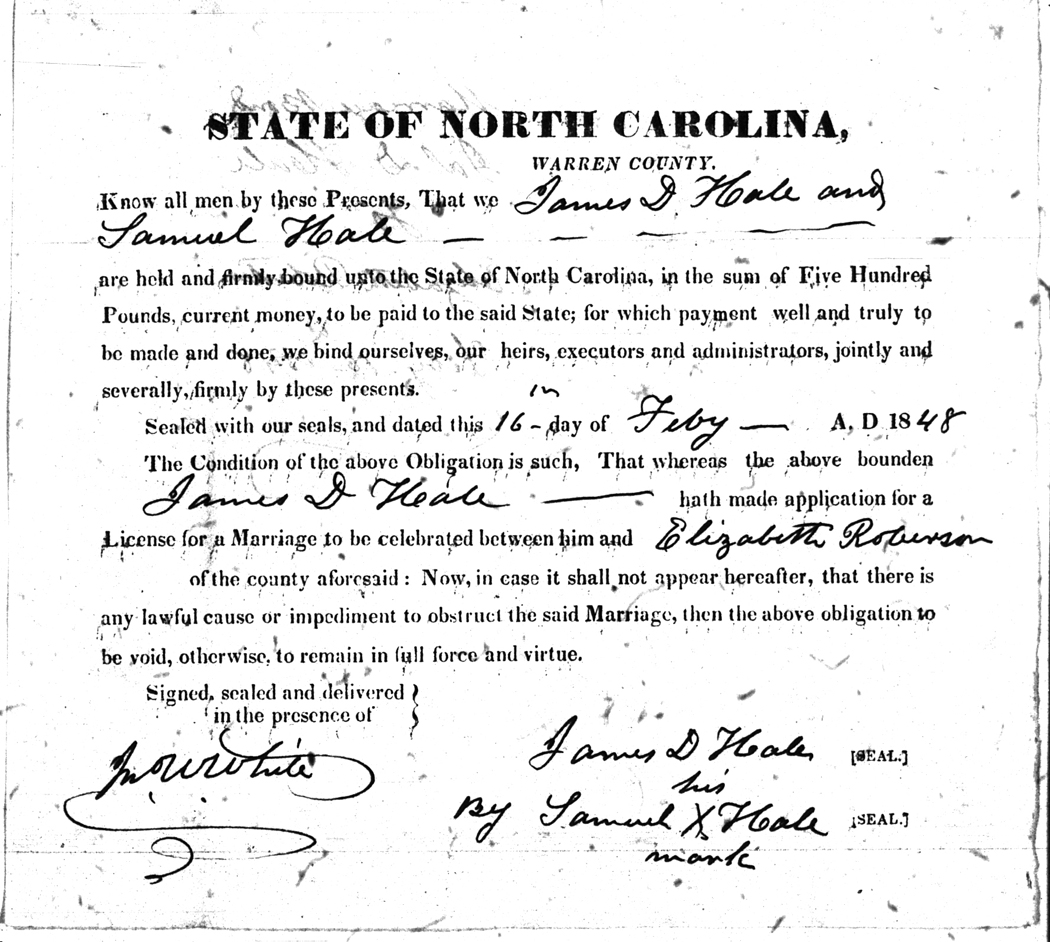 STATE OF NORTH CAROLINA,
WARREN COUNTY.
Know all men by these Presents, That we James D. Hale and
Samuel Hale — — — —
are held and firmly bound unto the State of North Carolina, in the sum of Five Hundred
Pounds, current money, to be paid to the said State; for which payment well and truly to
be made and done, we bind ourselves, our heirs, executors and administrators, jointly and
severally, firmly by these presents.
Sealed with our seals, and dated this 16 – day of Feby — A. D 1848
The Condition of the above Obligation is such, That whereas the above bounden
James D Hale — hath made application for a
License for a Marriage to be celebrated between him and Elizabeth Roberson
of the county aforesaid: Now, in case it shall not appear hereafter, that there is
any lawful cause or impediment to obstruct the said Marriage, then the above obligation to
be void, otherwise, to remain in full force and virtue.
Signed, sealed and delivered
in the presence of
Jno W White
James D Hale [SEAL.]
his
By Samuel X Hale [SEAL.]
mark